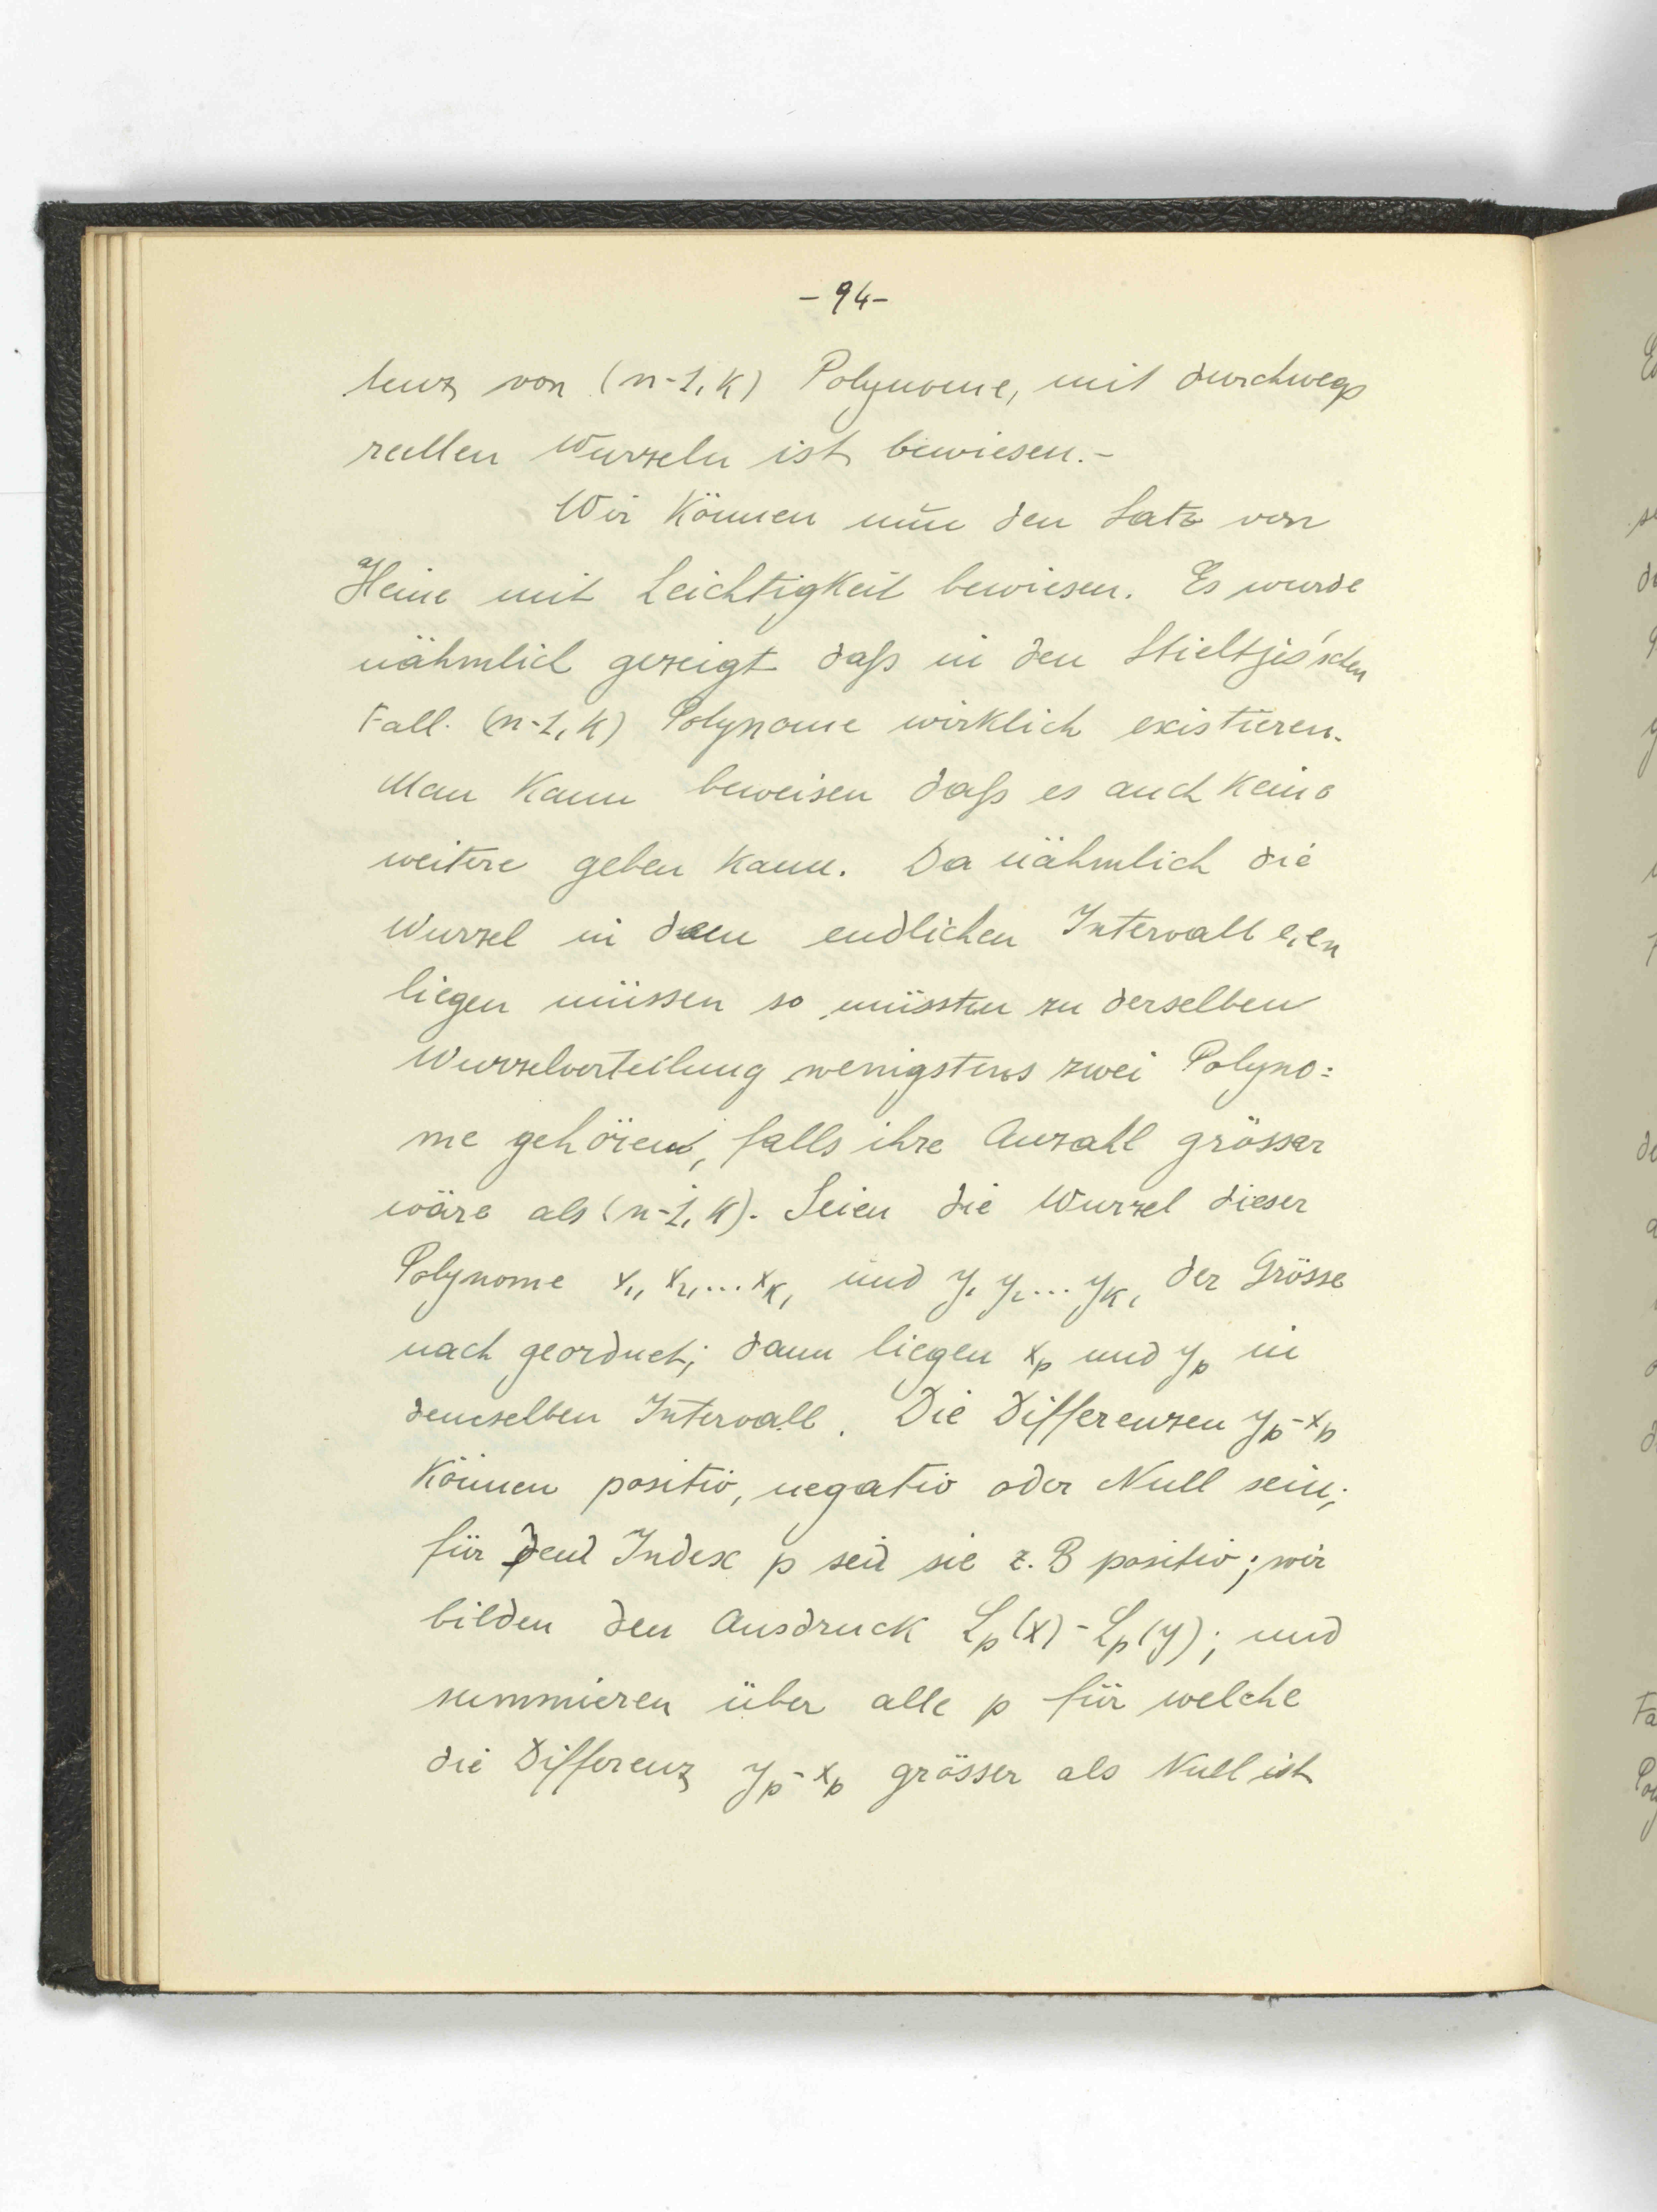 -94-
tenz von (n-1, k) Polynome, mit durchwegs
reellen Wurzeln ist bewiesen.-
Wir können nun den Satz von
Heine mit Leichtigkeit bewiesen. Es wurde
nähmlich gezeigt daß in den Stieltjes'schen
Fall. (n-1, k) Polynome wirklich existieren.
Man kann beweisen daß es auch keine
weitere geben kann. Da nähmlich die
Wurzel in den endlichen Intervall e₁ eₙ
liegen müssen so müssten zu derselben
Wurzelverteilung wenigstens zwei Polyno=
me gehören, falls ihre Anzahl grösser
wäre als (n-1, k). Seien die Wurzel dieser
Polynome x₁, x₂, ... xₖ, und y₁ y₂ ... yₖ, der Grösse
nach geordnet; dann liegen xₚ und yₚ in
demselben Intervall. Die Differenzen yₚ-xₚ
können positiv, negativ oder Null sein;
für den Index p seid sie z. B positiv; wir
bilden den Ausdruck Lₚ(x) - Lₚ(y); und
summieren über alle p für welche
die Differenz yₚ-xₚ grösser als Null ist